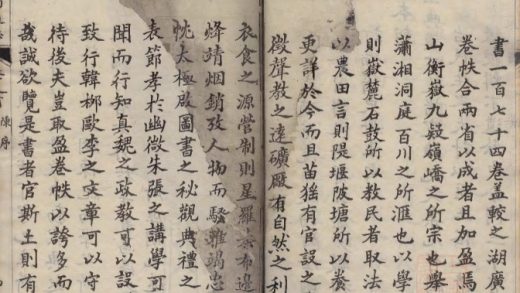 書一百七十四卷蓋較之湖廣
卷帙合兩省以成者且加盈焉
山衡嶽九嶷嶺嶠之所宗也舉
瀟湘洞庭百川之所滙也以學
則嶽麓石鼓所以教民者取法
以農田言則隄堰陂塘所以養
更詳於今而且苗猺有官設之
徵聲教之逹礦厰有自然之利
衣食之源營制則星羅布邊
烽靖烟銷攷人物而騷雅竭忠
忱太極啟圖書之秘觀典禮之
表節孝於幽微朱張之講學可
聞而行知真魏之政教可以設
致行韓柳歐李之文章可以守
待後夫豈取盈卷帙以誇多而
哉誠欲覽是書者官斯土則有
陳序